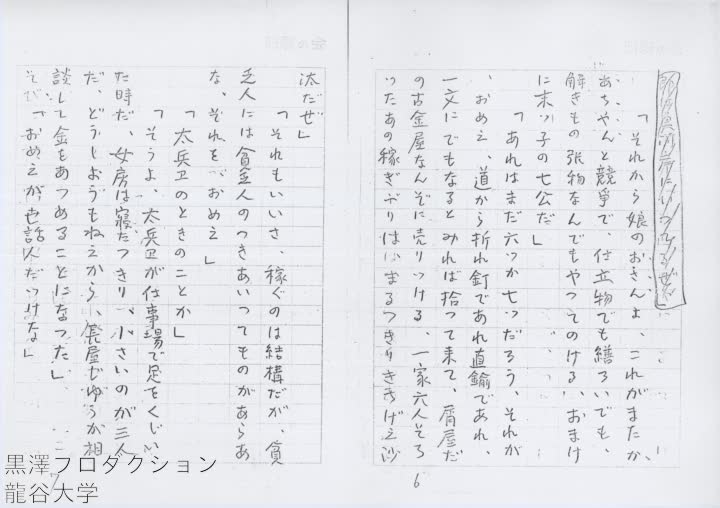 「それから娘のおさんよ、これがまたか
あちやんと競争で、仕立物でも繕ろいでも、
解きもの張物なんでもやつてのける、おまけ
に末ッ子の七公だ」
「あれはまだ六ッか七ッだろう、それが
、おめえ、道から折れ釘であれ直鍮であれ、
一文にでもなるとみれば拾って来て、屑屋だ
の古金屋なんぞに売りつける、一家六人そろ
ったあの稼ぎぶりは、まるつきりきちげえ沙
6
汰だぜ」
「それもいいさ、稼ぐのは結構だが、貧
乏人には貧乏人のつきあいってものがあらあ
な、それを、おめえ」
「太兵ヱのときのことか」
「そうよ、太兵ヱが仕事場で足をくじい
た時だ、女房は寝たつきり、小さいのが三人
だ、どうしようもねえから、長屋じゆうが相
談して金をあつめることになつた」
「おめえが世話人だつけな」
7
黒澤プロダクション
龍谷大学